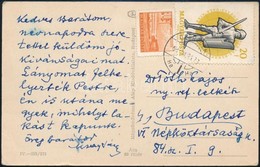 Kedves Barátom,
névnapodra szere-
tettel küldöm jó-
kívánságaimat.
Lányomat felhe-
lyezték Pestre,
én is utána me-
gyek, mihelyt la-
kást kapunk.
Öreg barátod
MAGYAR
20
Dr Tóth Lajos
ny. ref. lelkész
Budapest
VI Népköztársaság u.
84. sz. I. 9.